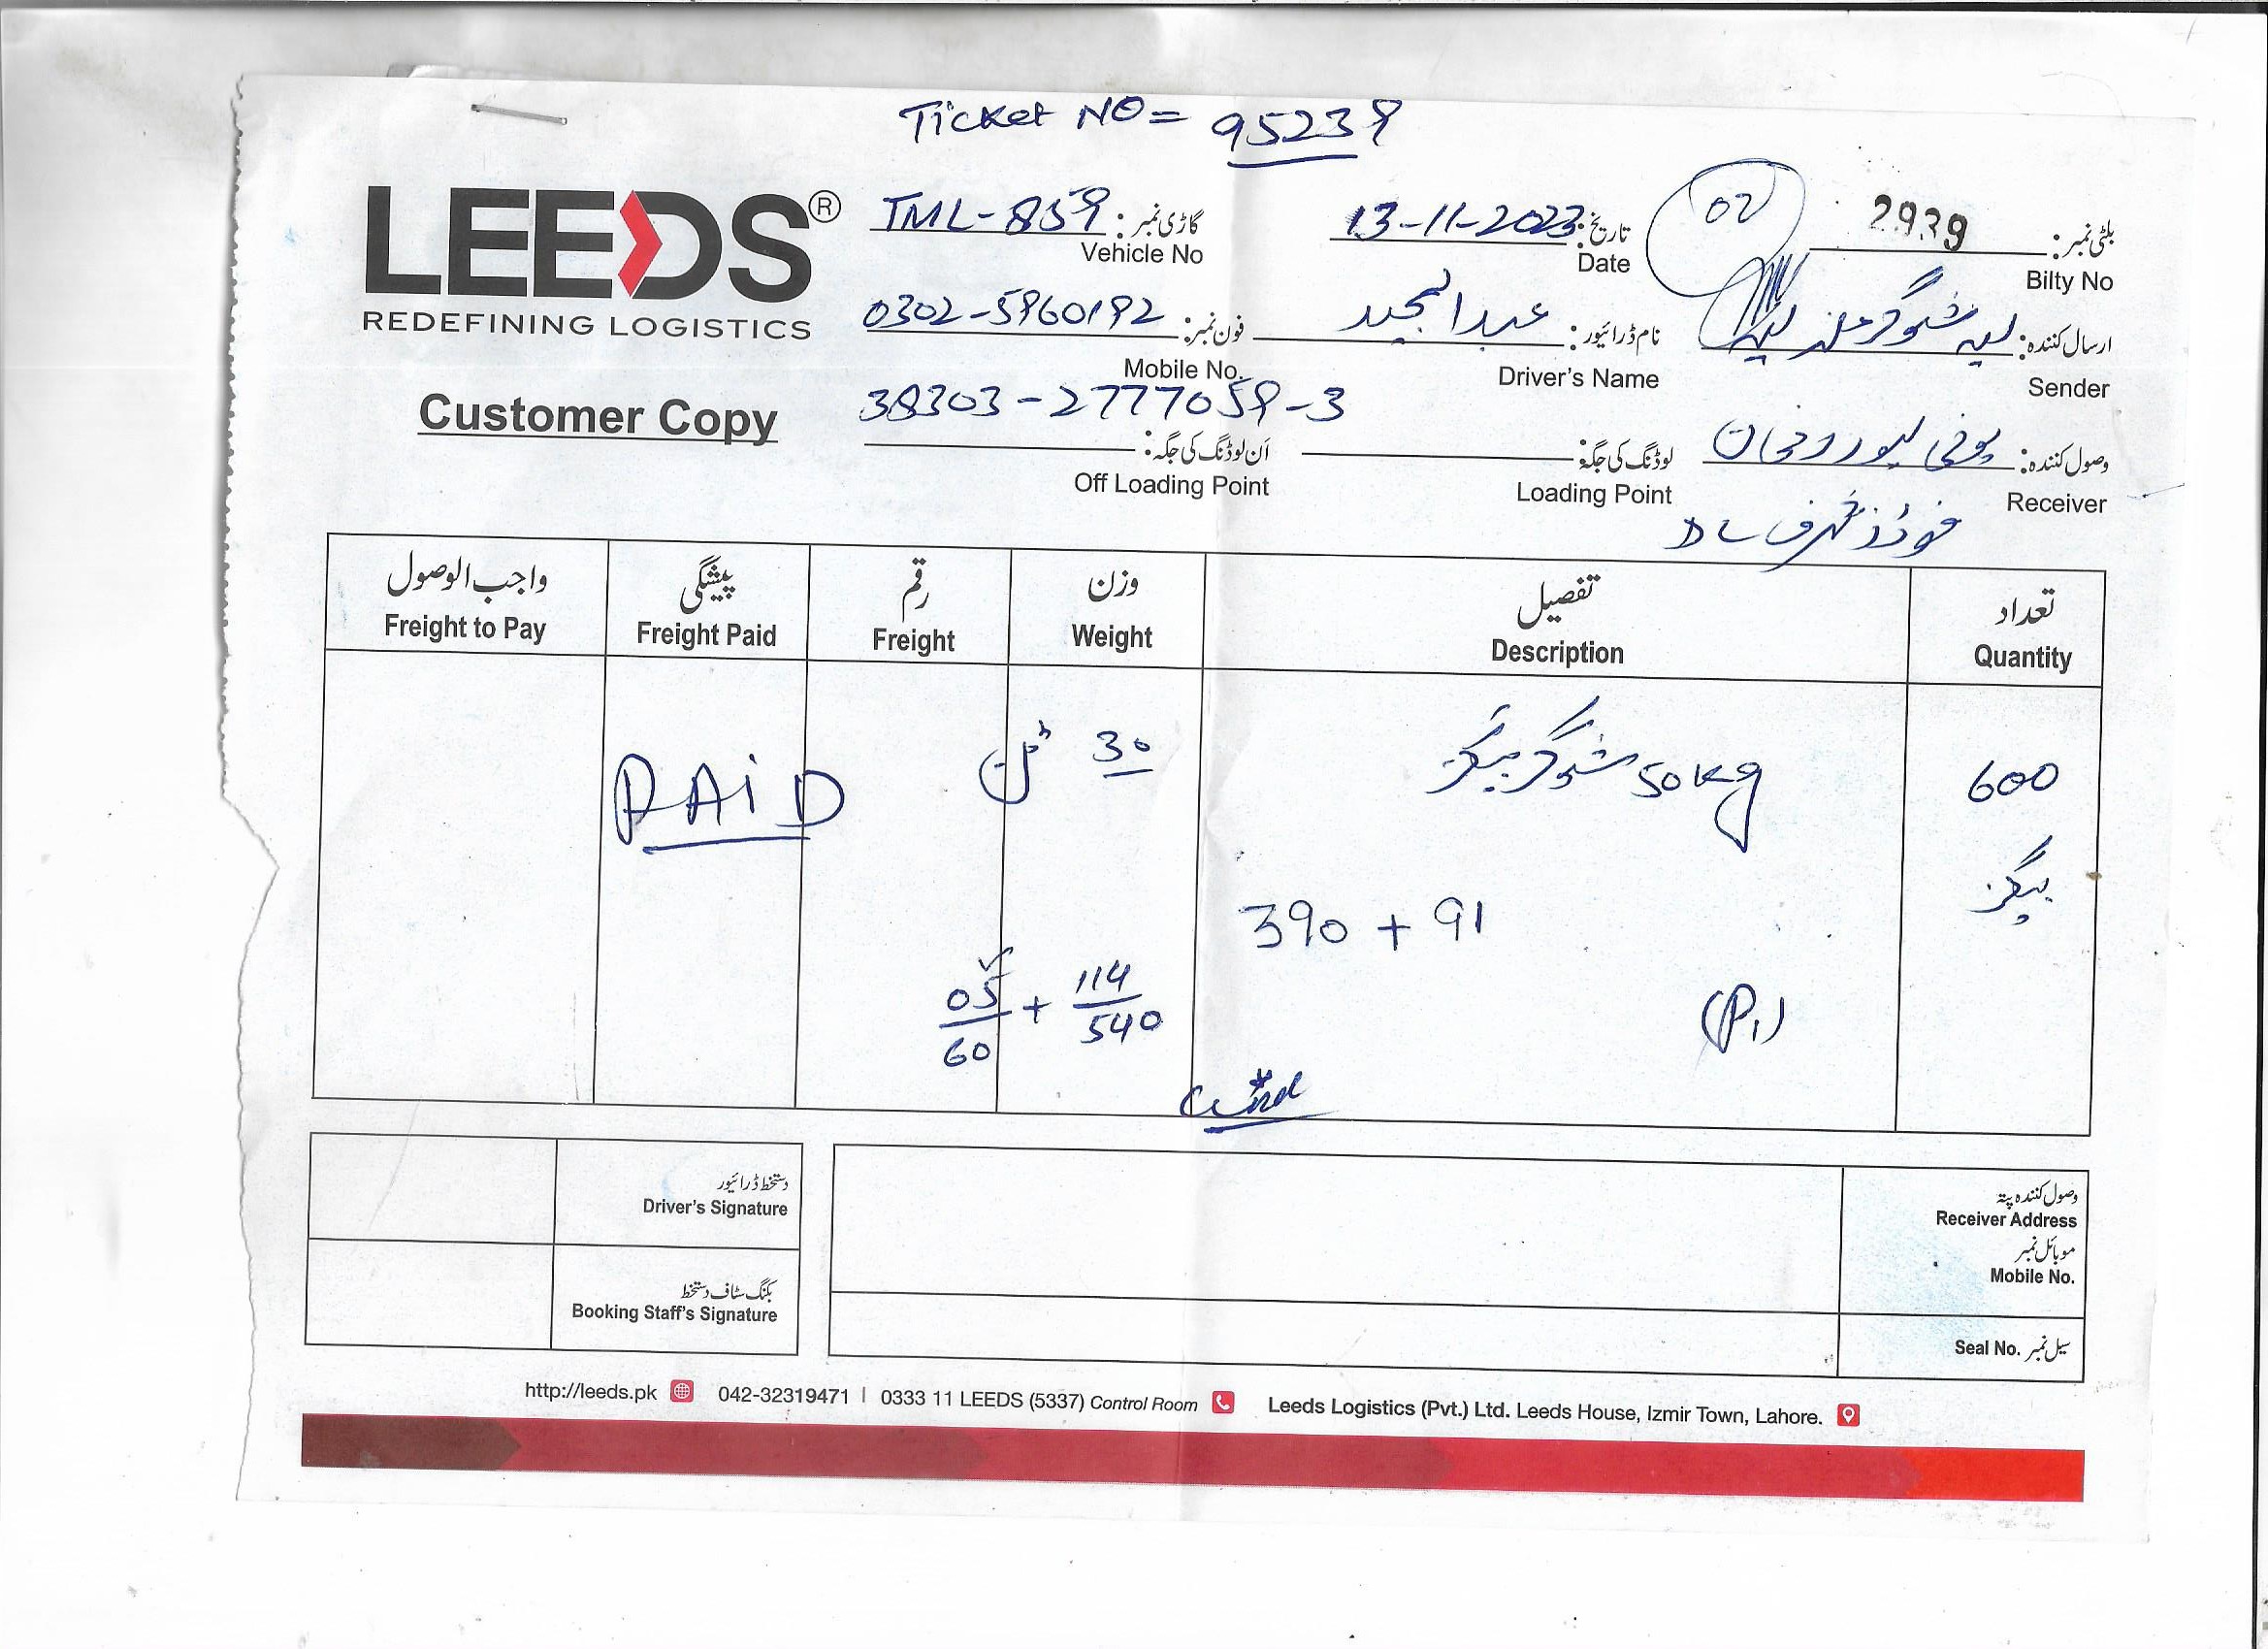 Ticket NO = 95239
LEEDS®
REDEFINING LOGISTICS
Customer Copy
گاڑی نمبر: TML-859
Vehicle No
تاریخ: 13-11-2023
Date
02
بلٹی نمبر: 2939
Bilty No
فون نمبر: 0302-5960192
Mobile No.
نام ڈرائیور: عبدالمجید
Driver's Name
ارسال کنندہ: لیہ شوگر ملز لیہ
Sender
38303-2777059-3
اَن لوڈنگ کی جگہ:
Off Loading Point
لوڈنگ کی جگہ:
Loading Point
وصول کنندہ:
Receiver
واجب الوصول پیشگی رقم وزن تفصیل تعداد
Freight to Pay Freight Paid Freight Weight Description Quantity
600 بیگز
50 kg شوگر بیگز
30 ٹن
PAiD
390 + 91
05/60 + 114/540
(P1)
دستخط ڈرائیور
Driver's Signature
بکنگ سٹاف دستخط
Booking Staff's Signature
وصول کنندہ پتہ
Receiver Address
موبائل نمبر
Mobile No.
Seal No. سیل نمبر
http://leeds.pk 042-32319471 | 0333 11 LEEDS (5337) Control Room Leeds Logistics (Pvt.) Ltd. Leeds House, Izmir Town, Lahore.